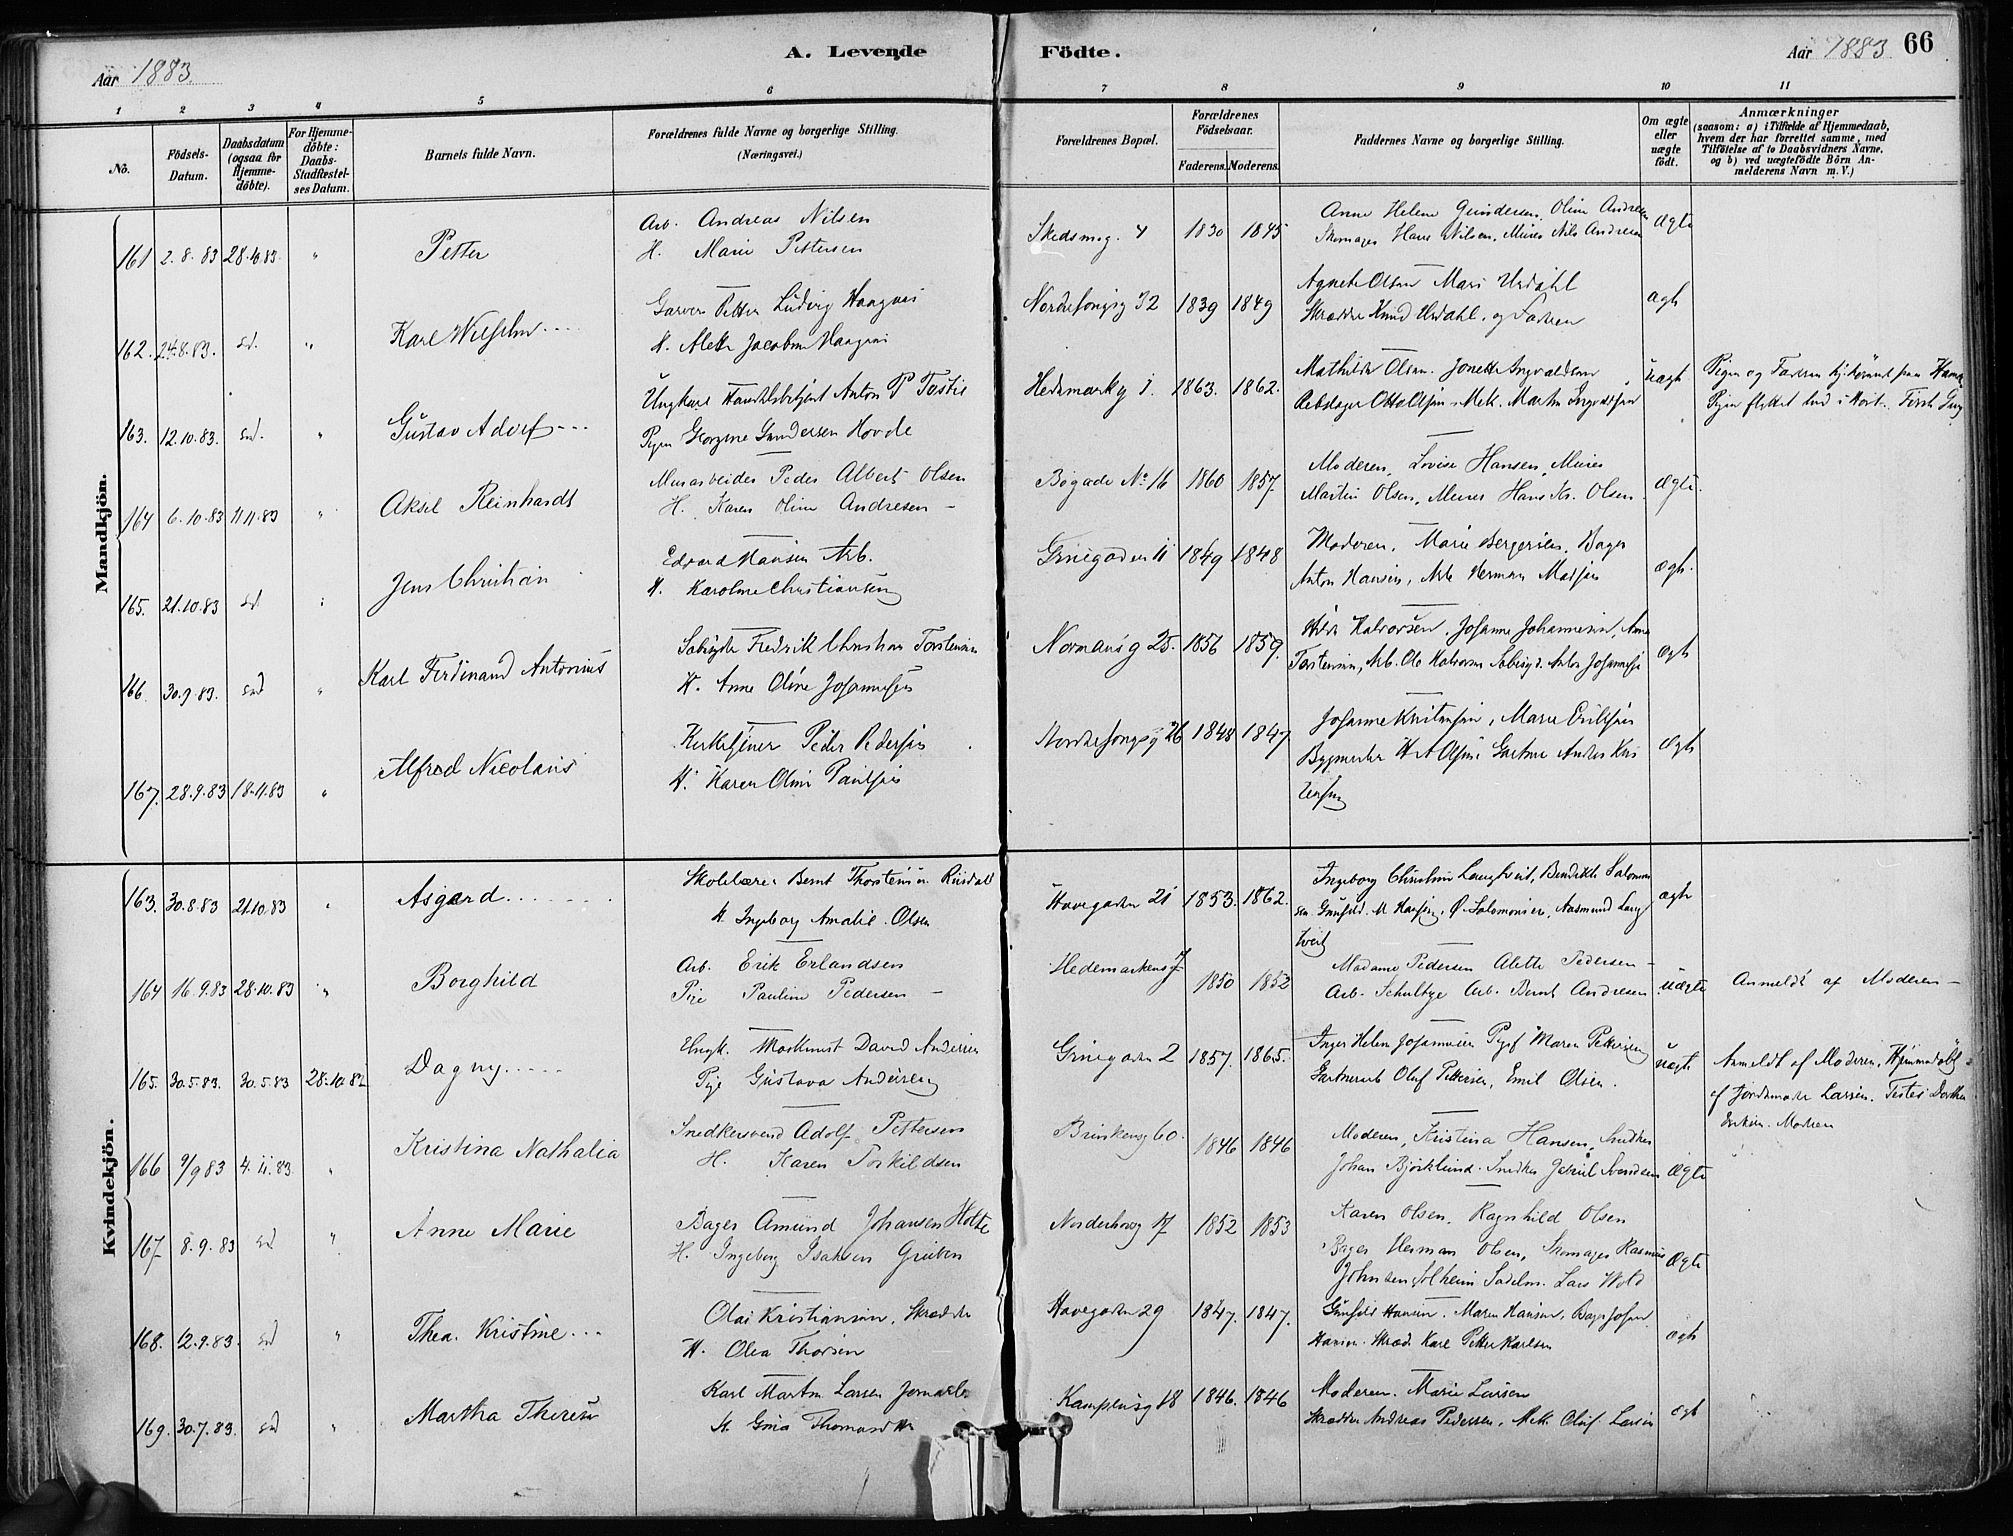 Aar 1883.
A. Levende Födte.
Aar 1883 66
1 2 3 4 5 6 7 8 9 10 11
No.
Födsels-Datum.
Daabsdatum (ogsaa for Hjemme-döbte).
For Hjemme-döbte: Daabs-Stadfæstel-ses Datum.
Barnets fulde Navn.
Forældrenes fulde Navne og borgerlige Stilling.
(Næringsvei.)
Forældrenes Bopæl.
Forældrenes Födselsaar.
Faderens. Moderens.
Faddernes Navne og borgerlige Stilling.
Om ægte eller uægte födt.
Anmærkninger
(saasom: a) i Tilfælde af Hjemmedaab,
hvem der har forrettet samme, med
Tilföielse af to Daabsvidners Navne,
og b) ved uægtefödte Börn An-
melderens Navn m. V.)
Mandkjön.
161 2.8.83 28.10.83 " Petter
Arb. Andreas Nilsen
H. Marie Pettersen
Skedsmog. 4 1830 1845
Anne Helene Gundersen, Oline Andresen
Skomager Hans Nilsen, Murer Nils Andresen
Ægte
162. 24.8.83. sd. " Karl Wilhelm
Garver Petter Ludvig Haagnæs
H. Alette Jacobine Haagnæs
Nordrehougsg 32 1839 1849
Agnete Olsen Mari Urdahl
Skrædder Knud Urdahl, og Faderen
ægte
163. 12.10.83. sd. " Gustav Adolf
Ungkarl Handelsbetjent Anton P
Pigen Georgine Gundersen Hovde
Hedemarksg 1. 1863. 1862.
Mathilde Olsen. Jonette Ingvaldsen
Rebslager Otto Olsen, Mek. Martin Ingvaldsen
uægte
Pigen og Faderen
164 6.10.83 11.11.83 " Aksel Reinhardt
Murarbeider Peder Albert Olsen
H. Karen Oline Andresen
Bøgade No 16 1860 1857.
Moderen, Lovise Hansen, Murer
Martin Olsen, Murer Hans Kr. Olsen
Ægte.
165. 21.10.83 sd " Jens Christian
Edvard Hansen Arb.
H. Karoline Christiansen
Grinegaden 11 1849 1848
Moderen, Marie Bergersen, Bager
Anton Hansen, Arb Herman Madsen
ægte.
166 30.9.83. sd " Karl Ferdinand Antonius
Fredrik Christian Torstensen
H. Anne Oline Johannesen
Normansg 25. 1856 1859.
Hilda Halvorsen, Josanne Johannesen, Anne
Torstensen, Arb. Ole Halvorsen Anton Johannesen
ægte
167. 28.9.83 18.11.83 " Alfred Nicolaus
Kirketjener Peder Pedersen
H. Karen Oline Paulsen
Nordrehougsg 26 1848 1847
Johanne Kristensen, Marie Eriksen
Bygmester H A Olsen Gartner Anders Kris
tensen
Ægte
Kvindekjön.
163. 30.8.83 21.10.83 " Asgerd
Skolelærer Bernt Thorstensen Risdal
H. Ingeborg Amalie Olsen
Havegaden 21 1853. 1862.
Ingeborg Christine Langtveit, Bendikte Salomon
sen Gunhild M Hansen, O. Salomonsen, Aasmund Lang
tveit
ægte
164 16.9.83 28.10.83 " Borghild
Arb. Erik Erlandsen
Pige Pauline Pedersen
Hedemarkensg 7 1850 1852
Madame Pedersen Alette Pedersen
Arb. Schultze Arb. Bernt Andresen
Uægte
Anmeldt af Moderen
165. 30.5.83. 30.5.83 28.10.83 Dagny
Ungk. Maskinist David Andersen
Pige Gustava Andersen
Grinegaden 2 1857. 1865.
Inger Helene Johannesen Pige Maren Pettersen
Gartnerarb Oluf Pettersen, Emil Olsen.
Uægte
Anmeldt af Moderen, Hjemmedøbt
af Jordemoder Larsen. Testes Dorthea
Eriksen. Moderen
166 9/9 83 4.11.83 " Kristina Nathalia
Snedkersvend Adolf Pettersen
H. Karen Torkildsen
Brinkeng 60. 1846 1846
Moderen, Kristina Hansen, Snedker
Johan Bjørklund. Snedker Svendsen
Ægte
167 8.9.83 sd " Anne Marie
Bager Amund Johansen Holte
H. Ingeborg Isaksen Gruben
Norderhovg 17 1852 1853
Karen Olsen, Ragnhild Olsen
Bager Herman Olsen, Skomager Rasmus
Johnsen Solheim Sadelm. Lars Wold
Ægte
168. 12.9.83. sd " Thea Kristine
Olai Kristiansen, Skrædder
H. Olea Thorsen
Havegaden 29 1847. 1847.
Gunhild Hansen. Maren Hansen, Bager Johan
Hansen. Skræd. Karl Petter Karlsen
ægte
169. 30.7.83. sd " Martha Therese
Karl Martin Larsen Jernarb
H. Gina Thomasdtr
Kampensg 18 1846. 1846
Moderen. Marie Larsen
Skrædder Andreas Pedersen, Mek. Oluf Larsen
ægte